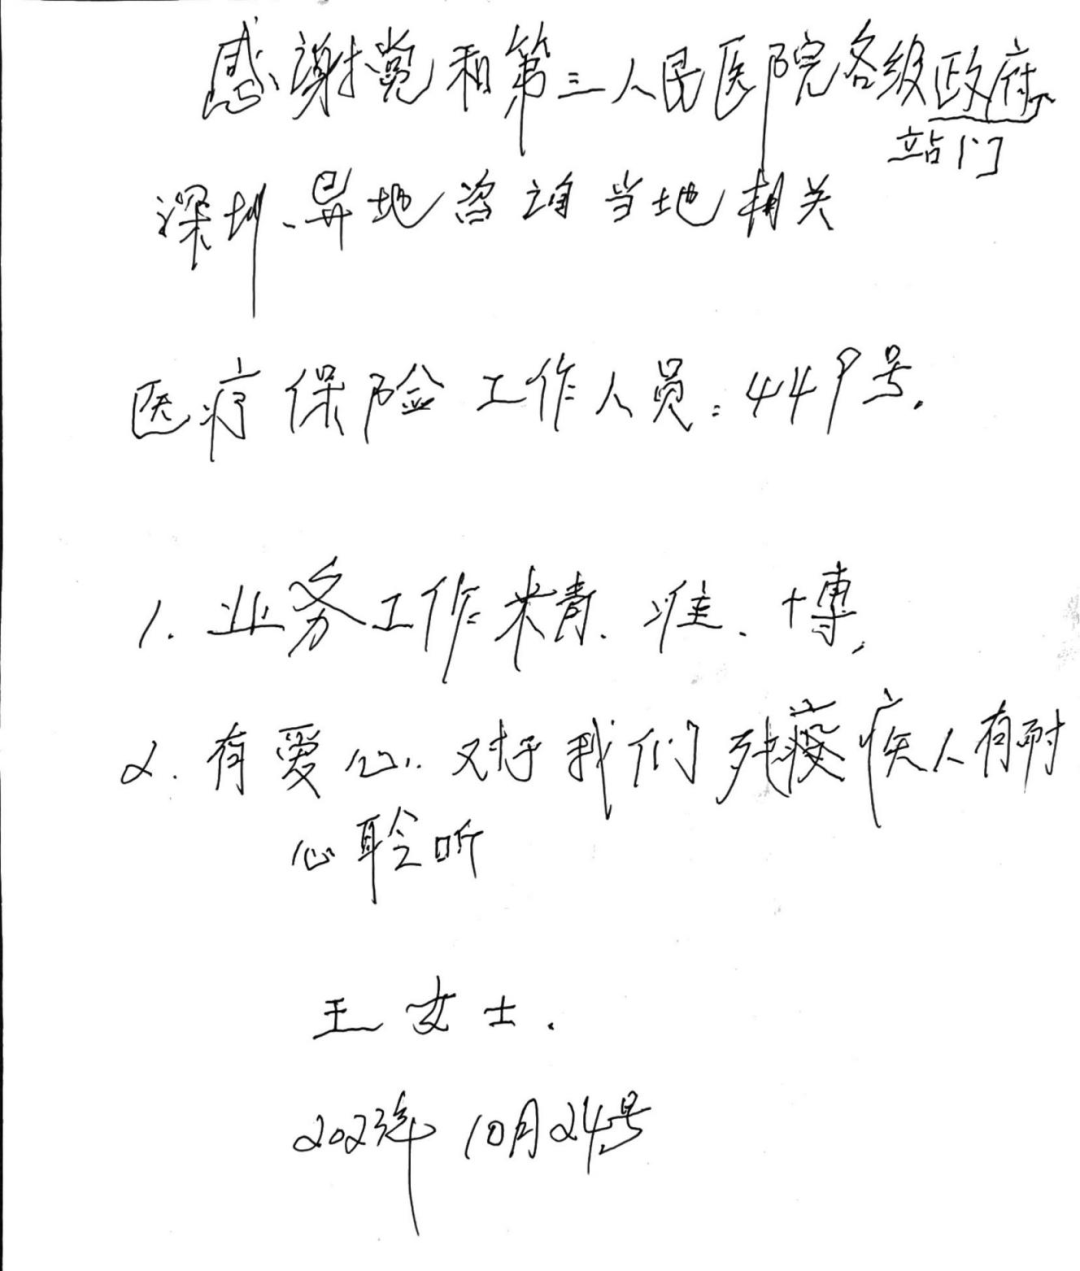 感谢党和第三人民医院各级政府
站门
深圳、异地咨询当地相关
医疗保险工作人员:449号.
1. 业务工作精、准、博,
2. 有爱心.. 对于我们残疾人有耐
心聆听
王女士.
2023年 10月24号